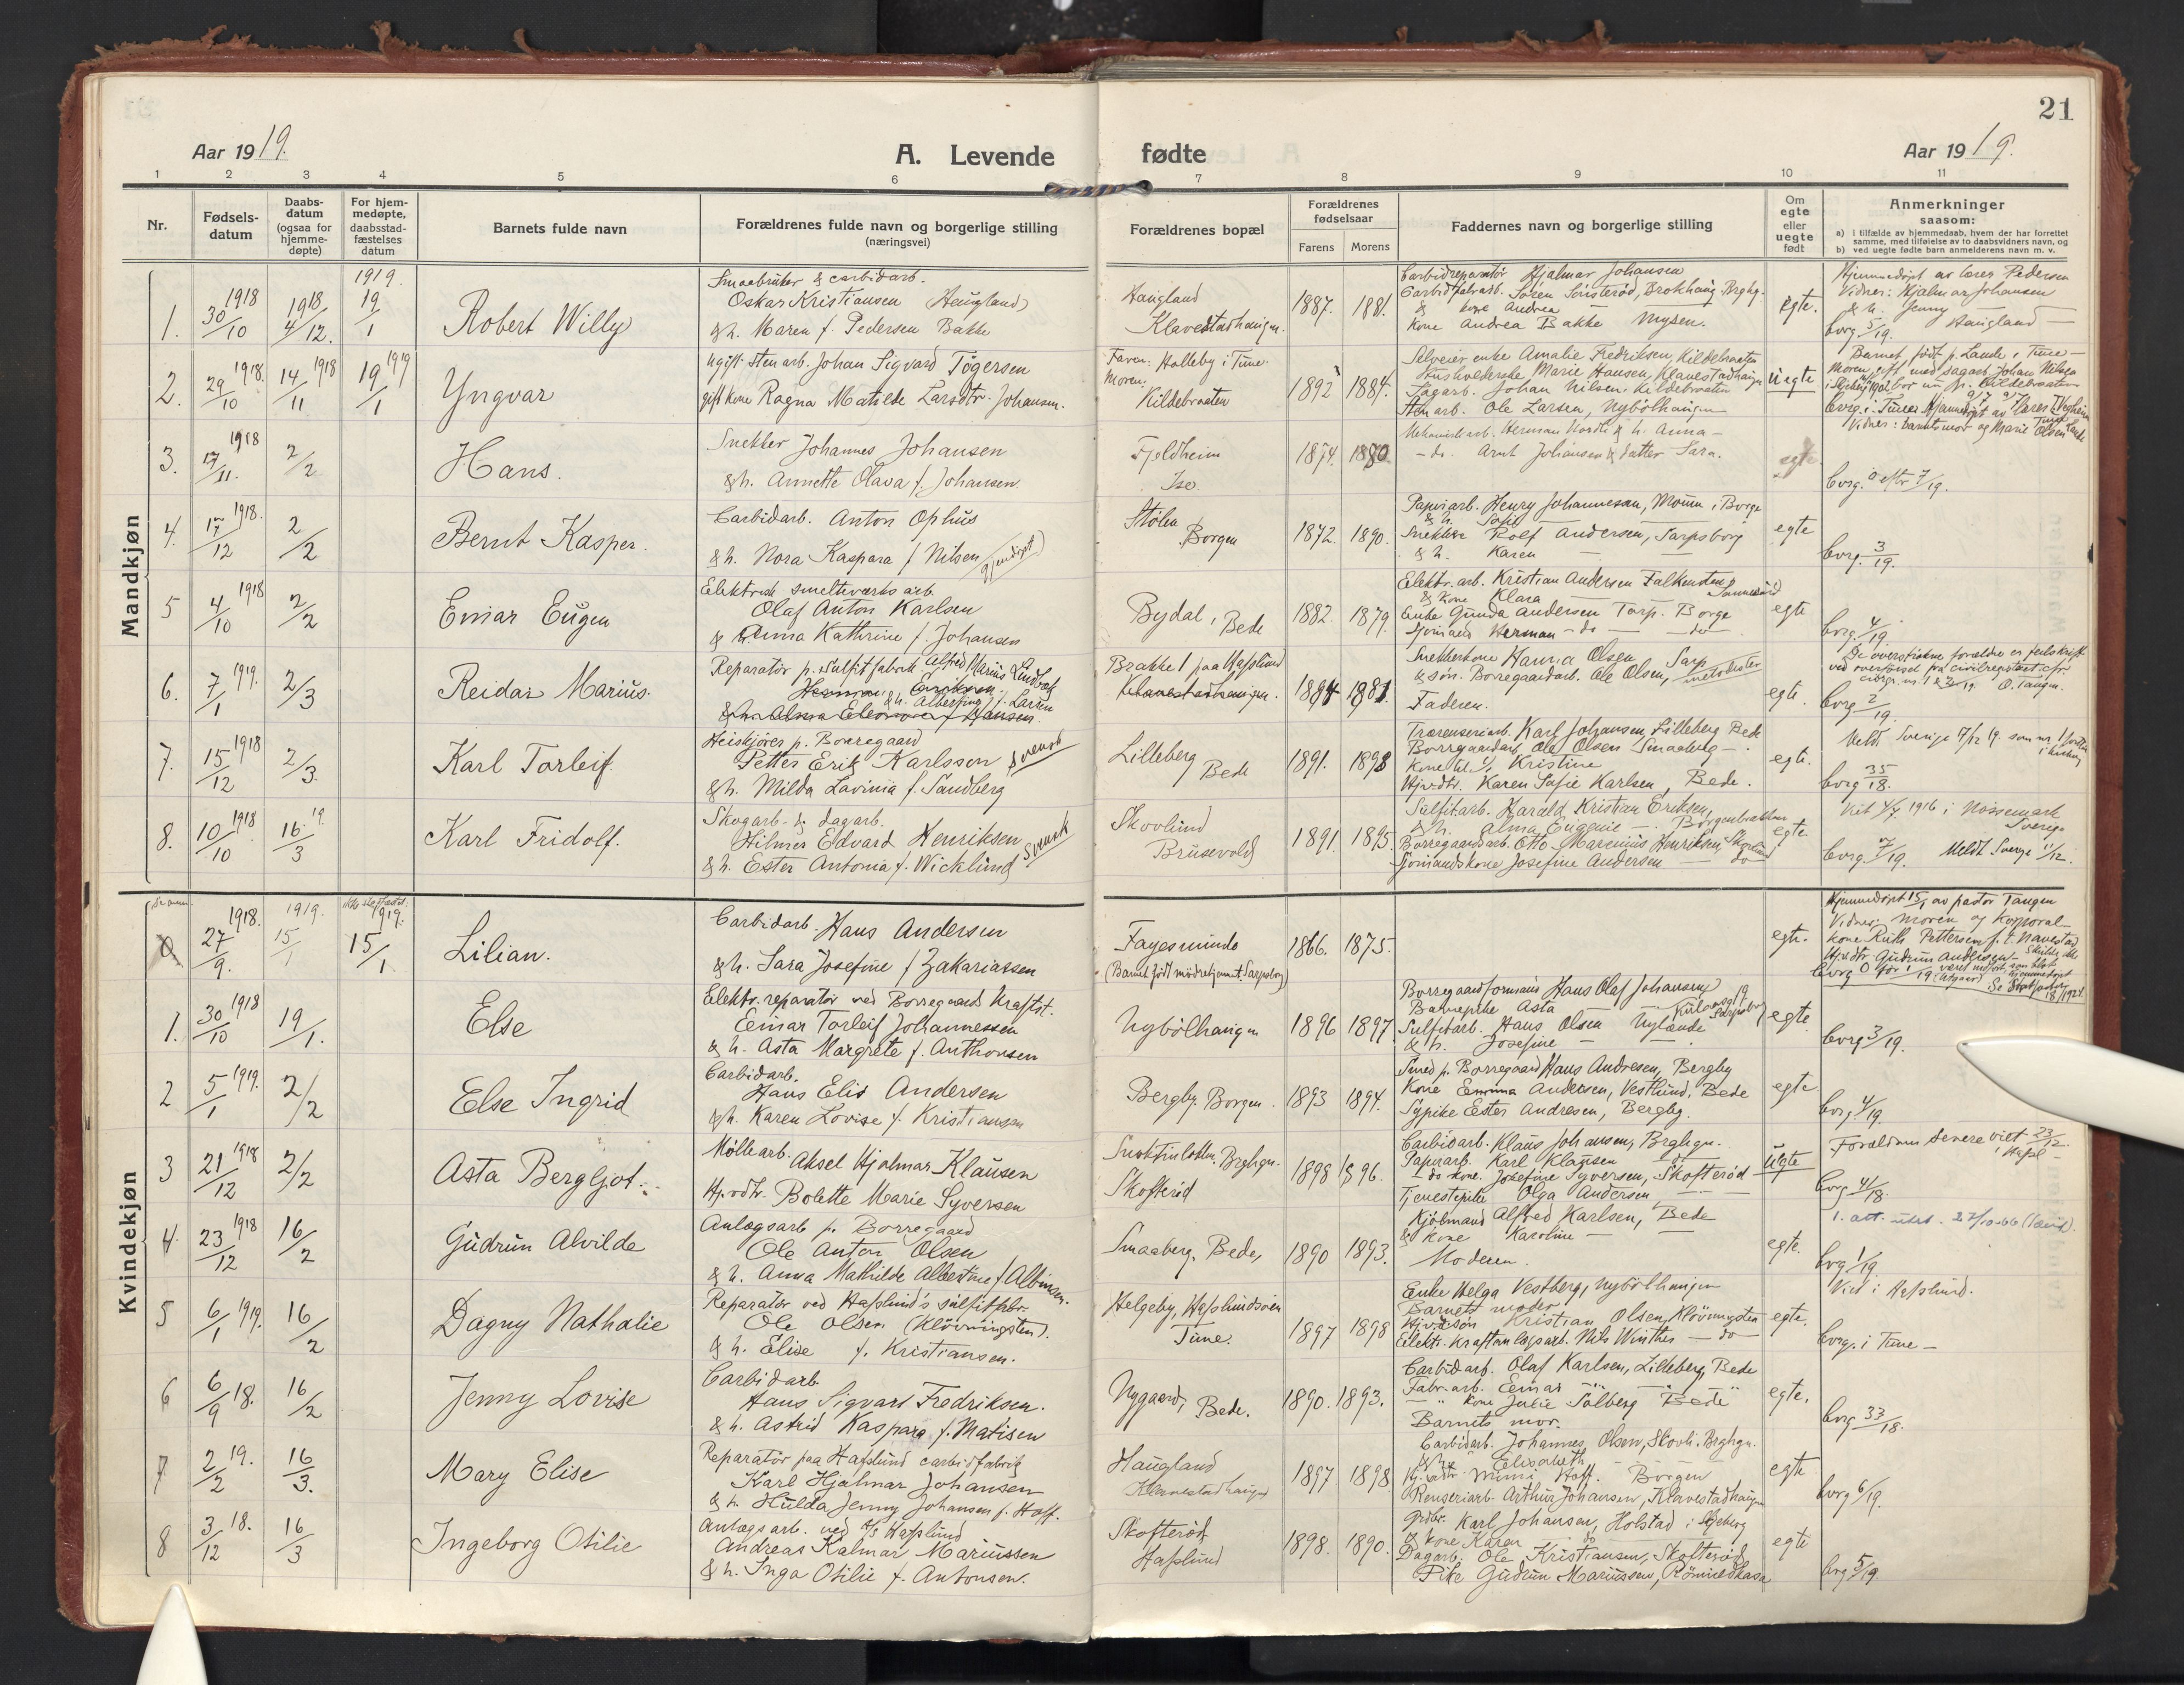 21
Aar 1919.
A. Levende
fødte
Aar 1919.
1 2 3 4 5 6 7 8 9 10 11
Nr.
Fødsels-
datum
Daabs-
datum
(ogsaa for
hjemme-
døpte)
For hjem-
medøpte,
daabsstad-
fæstelses
datum
Barnets fulde navn
Forældrenes fulde navn og borgerlige stilling
(næringsvei)
Forældrenes bopæl
Forældrenes
fødselsaar
Farens Morens
Faddernes navn og borgerlige stilling
Om
egte
eller
uegte
født
Anmerkninger
saasom:
a) i tilfælde av hjemmedaab, hvem der har forrettet
samme, med tilføielse av to daabsvidners navn, og
b) ved uegte fødte barn anmelderens navn m. v.
Mandkjøn
1. 30/10 1918 4/12 1918 19/1 1919.
Robert Willy
Smaabruker & carbidarb.
Oskar Kristiansen (Haugland)
& h. Maren f. Pedersen Bakke
Haugland
Klavestadhaugen.
1887. 1881.
Carbidreparatør Hjalmar Johansen
kone Andrea Bakke Mysen.
egte.
Hjemmedøpt av lærer Pedersen
Vidner: Hjalmar Johansen
& h. Jenny Haugland
borg. 5/19.
2. 29/10 1918. 14/11 1918 19/1 1919
Yngvar
ugift stenarb. Johan Sigvard Tøgersen
gift kone Ragna Matilde Larsdtr. Johansen.
Faren: Halleby i Tune.
Moren:
Kildebraaten
1892 1884.
Selveier enke Amalie Fredriksen, Kildebraaten
Husholderske Marie Hansen, Klavestadhaugen
Sagarb. Johan Nilsen, Kildebraaten
Stenarb. Ole Larsen, Nybølhaugen
uegte
Barnet født p. Lande i Tune
Vidner: barnets mor og Marie Olsen Lande
3. 17/11. 1918 2/2
Hans.
Snekker Johannes Johansen
& h. Annette Olava f. Johansen.
Fjeldheim
Ise
1874. 1880.
Mekanisk arb. Herman Nordli & h. Anna
- do. Arnt Johansen & datter Sara.
egte
4. 17/12 1918. 2/2
Bernt Kasper.
Carbidarb. Anton Ophus
& h. Nora Kaspara f. Nilsen
Stølen
Borgen
1872. 1890.
Papirarb. Henry Johannesen, Moum i Borge
& h. Sofie
Snekker Rolf Andersen, Sarpsborg
& h. Karen
egte
borg. 3/19.
5 4/10 1918 2/2
Einar Eugen
Elektrisk smelteverks arb.
Olaf Anton Karlsen
& Anna Kathrine f. Johansen
Bydal, Bede
1882. 1879.
Elektr. arb. Kristian Andersen Falkensten
& kone Klara
Enke Gunda Andersen Torp. Borge
Sjømand Herman - do - do
egte
borg. 4/19.
6. 7/1 1919. 2/3
Reidar Marius.
Reparatør p. Sulfitfabrik. Alfred Marius Lindbæk
Herman Eriksen
& h. Albertine f. Larsen
& h. Alma Eleonora f. Hansen.
Brakke 1 paa Hafslund
Klavestadhaugen.
1884 1881
Snekkerkone Hanna Olsen Sarp
& søn. Borregaardarb. Ole Olsen,
Faderen.
egte.
De overstrøkne forældre er feilskrift
ved overførsel fra civilregistret
O. Tangen.
borg 2/19.
7. 15/12 1918 2/3.
Karl Torleif.
Heiskjører p. Borregaard
Petter Erik Karlsson svensk
& h. Milda Lavinia f. Sandberg
Lilleberg
Bede
1891. 1898
Trærenseriarb. Karl Johansen, Lilleberg Bede
Borregaardarb. Ole Olsen Smaaberg
kone til Kristine
Hjvdtr. Karen Sofie Karlsen, Bede.
egte.
Meldt Sverige 7/12 19.
borg 35/18.
8. 10/10 1918 16/3 19.
Karl Fridolf.
Skogarb. & dagarb.
Hilmer Edvard Henriksen svensk
& h. Ester Antonia f. Wicklund
Skovlund
Brusevold
1891. 1895.
Sulfitarb. Harald Kristian Eriksen,
& h. Alma Eugenie Borgenbrakken
Borregaardarb. Otto Marenius Henriksen, Skovlund
Sjømandskone Josefine Andersen do
egte
Viet 4/7 1916 i Nössemark
Sverige
borg. 7/19. Meldt Sverge 11/12.
Kvindekjøn
0 27/9. 1918. 15/1 1919. 15/1 1919.
Lilian.
Carbidarb. Hans Andersen
& h. Sara Josefine f. Zakariassen
Fayesminde
(Barnet født mødrehjemmet. Sarpsborg)
1866. 1875.
egte.
Hjemmedøpt 15/1 av pastor Tangen
Vidner: Moren og Korporal-
kone Ruth Pettersen f. t. Navestad
1. 30/10 1918 19/1.
Else
Elektr. reparatør ved Borregaards Kraftst.
Einar Torleif Johannessen
& h. Asta Margrete f. Anthonsen
Nybølhaugen
1896 1897
Borregaardformand Hans Olaf Johansen
Barnepike Asta
Sulfitarb. Hans Olsen Nylænde
& h. Josefine
egte
borg 3/19.
2 5/1 1919. 2/2
Else Ingrid
Carbidarb.
Hans Elis Andersen
& h. Karen Lovise f. Kristiansen
Bergby. Borgen.
1893 1894.
Smed p. Borregaard Hans Andresen, Bergby
Kone Emma Andersen, Vestlund, Bede
Sypike Ester Andresen, Bergby.
egte
borg 4/19.
3 21/12 1918 2/2
Asta Bergljot.
Møllearb. Aksel Hjalmar Klausen
Hj.vdtr. Bolette Marie Syversen
Skofterød
1898 1896.
Carbidarb. Klaus Johansen, Brghgn.
Papirarb. Karl Klausen
- do kone. Josefine Syversen, Skofterød
Tjenestepike Olga Andersen,
uegte
Forældrene senere viet 23/12.
borg 41/18.
4. 23/12 1918 16/2
Gudrun Alvilde
Anlægsarb p. Borregaard
Ole Anton Olsen
& h. Anna Mathilde Albertine f. Albinsen.
Smaaberg, Bede,
1890 1893.
Kjølmand Alfred Karlsen, Bede
& kone Karoline
Moderen.
egte.
1. att. utst. 27/10-66
borg 1/19.
5 6/1 1919. 16/2
Dagny Nathalie
Reparatør ved Hafslund's sulfitfabr.
Ole Olsen (Kløvningsten).
& h. Elise f. Kristiansen.
Helgeby, Hafslundsøen
Tune.
1897 1898
Enke Helga Vestberg, Nybølhaugen
Barnets moder
Hjvdsøn Kristian Olsen, Kløvningsten
Elektr. kraftanlægsarb. Nils Winther - do
egte.
Viet i Hafslund.
borg. i Tune -
6 6/9 18. 16/2
Jenny Lovise
Carbidarb.
Hans Sigvart Fredriksen.
& h. Astrid Kaspara f. Matisen
Nygaard, Bede.
1890. 1893.
Carbidarb. Olaf Karlsen, Lilleberg, Bede
Fabr.arb. Einar
kone Julie Solberg Bede
Barnets mor.
egte.
borg 33/18.
7 2/2 19. 16/3.
Mary Elise
Reparatør paa Hafslund carbidfabrik
Karl Hjalmar Johansen
& h. Hulda Jenny Johansen f. Hoff.
Haugland
Klavestadhaugen
1897. 1898.
Carbidarb. Johannes Olsen, Skovli. Brghgn.
& h. Elisabeth
Hj.vdtr. Mimi Hoff. Borgen
Renseriarb. Arthur Johansen, Klavestadhaugen
egte
borg 6/19.
8 3/12 18. 16/3
Ingeborg Otilie
Anlægsarb. ved A/S Hafslund
Andreas Kalmar Mariussen
& h. Inga Otilie f. Antonsen.
Skofterød
Hafslund
1898. 1890.
Grdbr. Karl Johansen, Holstad i Skjeberg
& kone Karen do
Dagarb. Ole Kristiansen, Skofterød
Pike Gudrun Mariussen,
egte
borg 5/19.